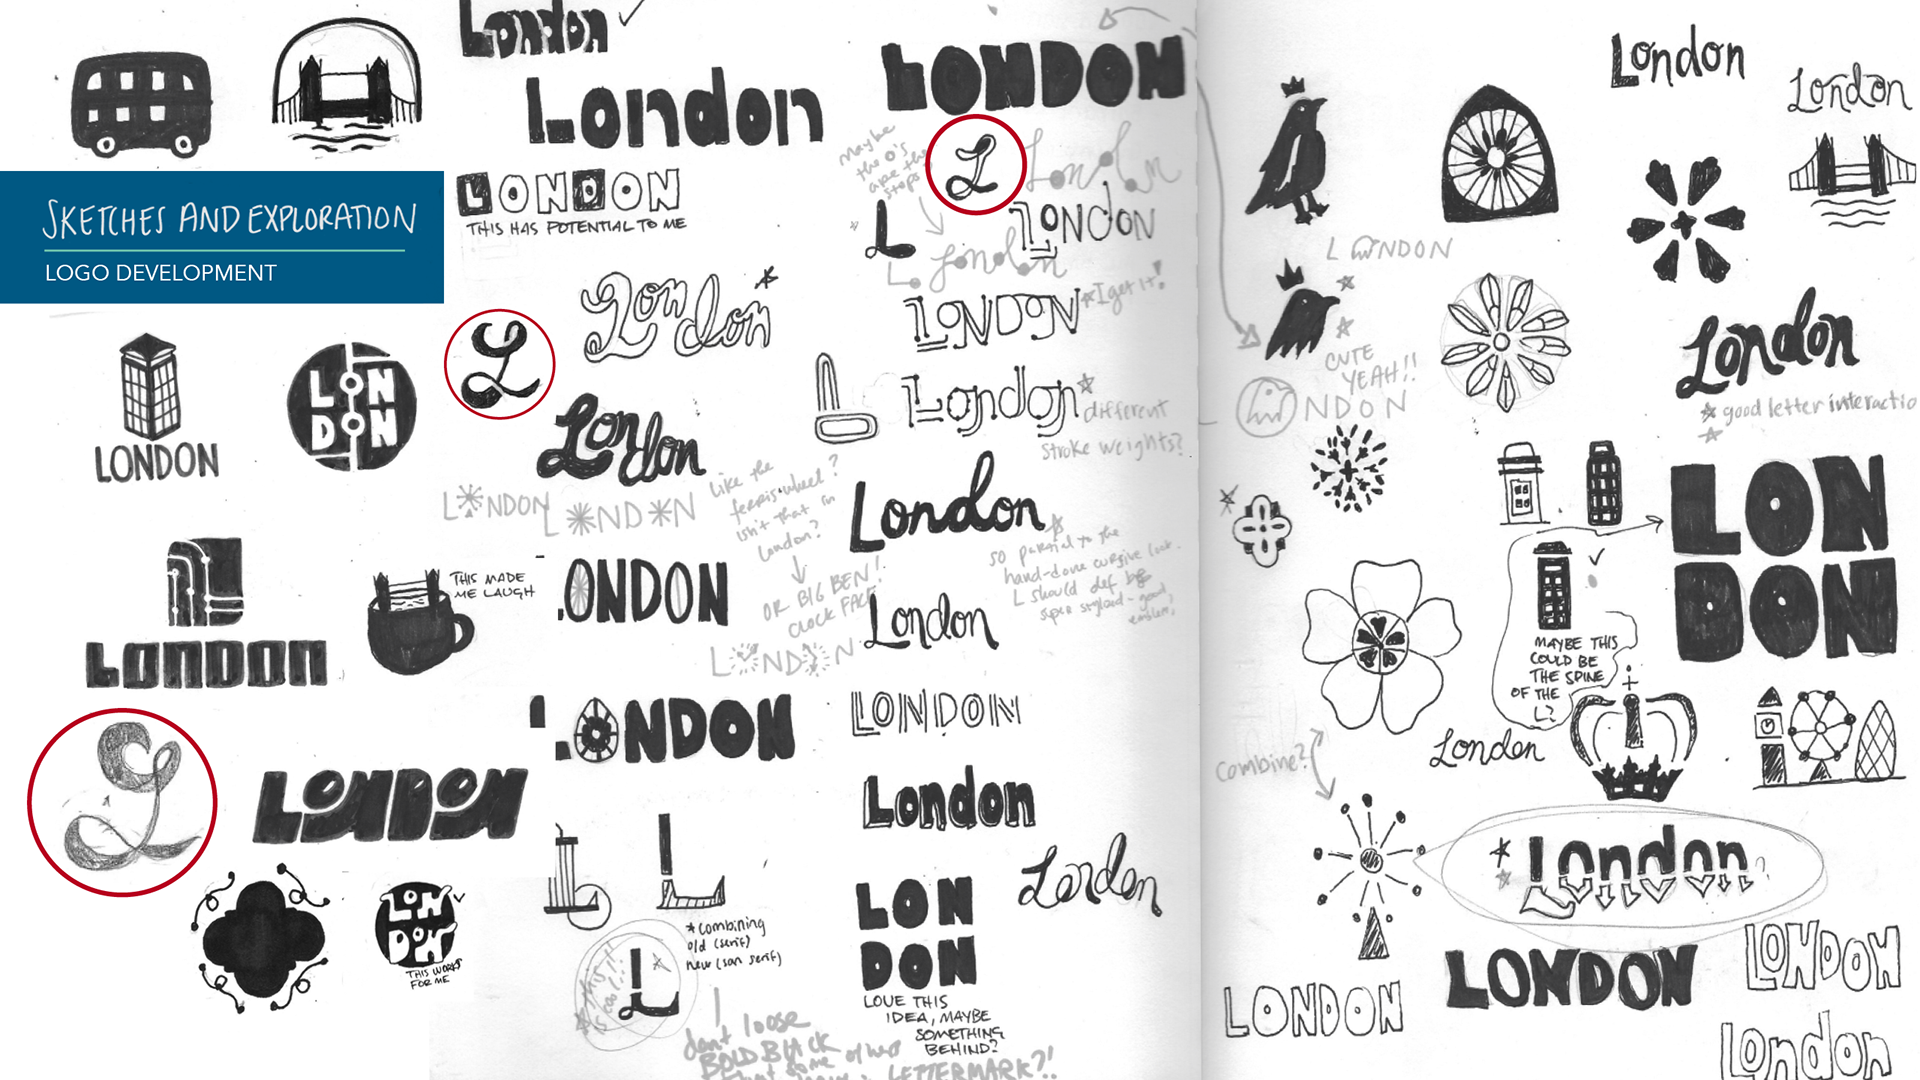 SKETCHES AND EXPLORATION
LOGO DEVELOPMENT
LONDON
LON
DON
LONDON
THIS MADE
ME LAUGH
L
LONDON
LON
DON
THIS WORKS
FOR ME
London
London
LONDON
THIS HAS POTENTIAL TO ME
L
London
London
LONDON
LONDON
like the
ferris wheel?
isn't that in
London?
OR BIG BEN!
CLOCK FACE
LONDON
LONDON
LONDON
L
L
*combining
old (serif)
new (san serif)
this is
cool!!
L
dont loose
BOLD BLACK
LETTERMARK?!
LONDON
Maybe
the o's
are the
stops
L
London
L
LONDON
London
LONDON
*I get it!
L
London
different
stroke weights?
London
so partial to the
hand-done cursive look.
L should def be
super stylized - good
emblem!
London
LONDON
London
London
LON
DON
LOVE THIS
IDEA, MAYBE
SOMETHING
BEHIND?
London
London
LONDON
CUTE
YEAH!!
NDON
London
good letter interactio
LON
DON
MAYBE THIS
COULD BE
THE SPINE
OF THE
L?
London
combine?
London
LONDON
LONDON
LONDON
London